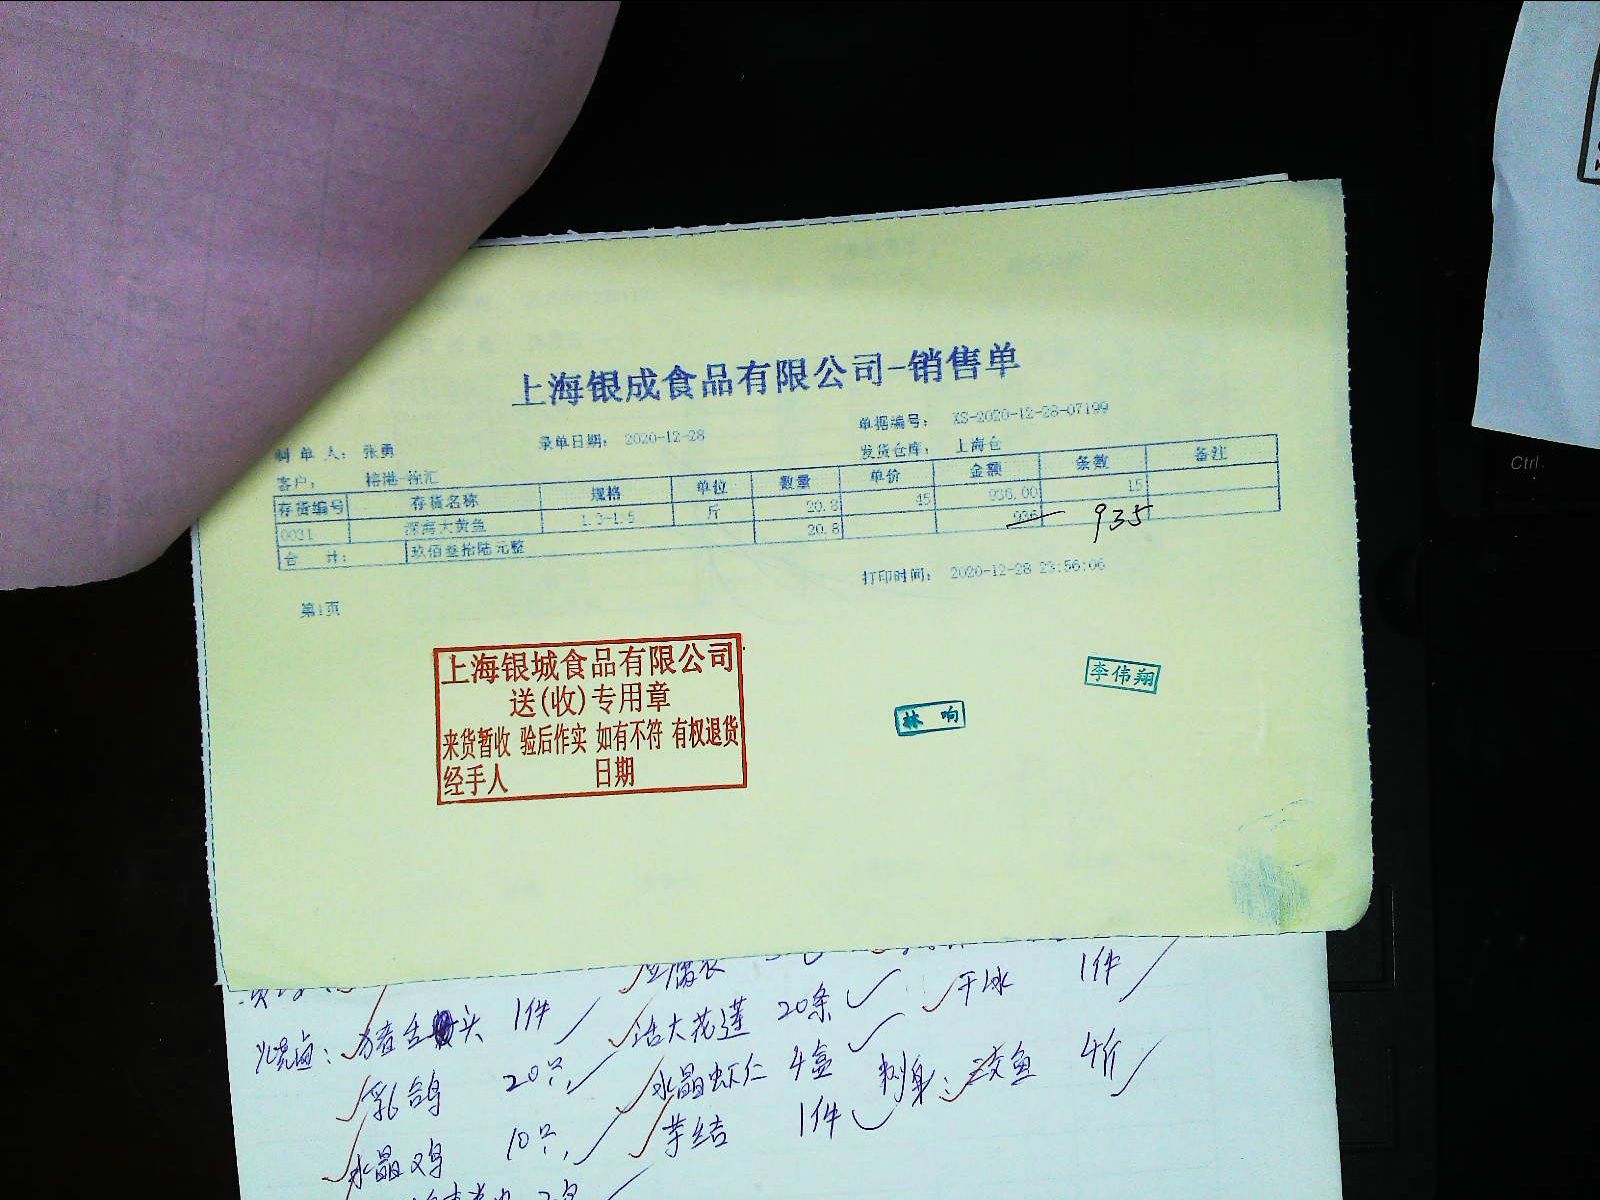 上海银成食品有限公司-销售单
制单人：张勇 录单日期：2020-12-28 单据编号：XS-2020-12-28-07199
客户： 榕港-徐汇 发货仓库：上海仓
存货编号 存货名称 规格 单位 数量 单价 金额 条数 备注
0031 深海大黄鱼 1.3-1.5 斤 20.8 45 936.00 15
合 计： 玖佰叁拾陆元整 20.8 936 935
打印时间：2020-12-28 23:56:06
第1页
上海银城食品有限公司
送(收)专用章
来货暂收 验后作实 如有不符 有权退货
经手人 日期
林响
李伟翔
豆腐衣
烧卤：猪舌头 1件 活大花莲 20条 干冰 1件
乳鸽 20只 水晶虾仁 4盒 刺身：
水晶鸡 10只 芋结 1件
Ctrl